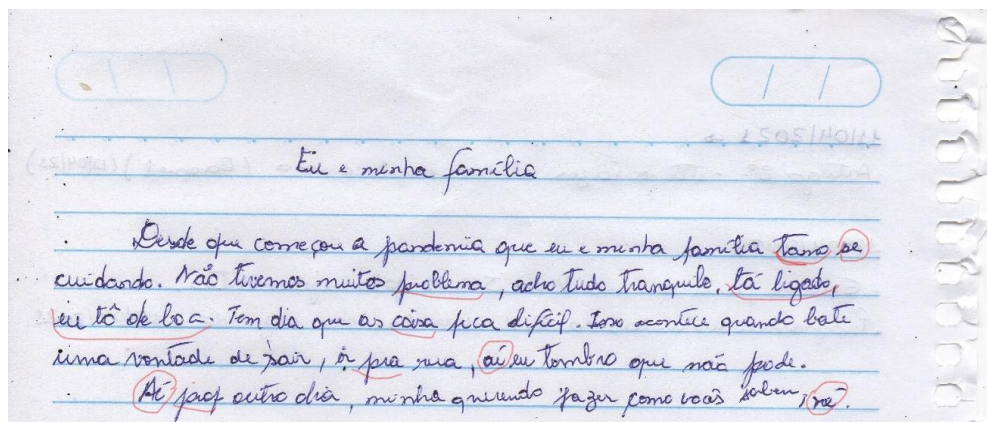 Eu e minha família
Desde que começou a pandemia que eu e minha família tamo se
cuidando. Não tivemos muitos problema, acho tudo tranquilo, tá ligado,
eu tô de boa. Tem dia que as coisa fica difícil. Isso acontece quando bate
uma vontade de sair, ir pra rua, aí eu lembro que não pode.
outro dia, minha querendo fazer como vocês sabem, né.